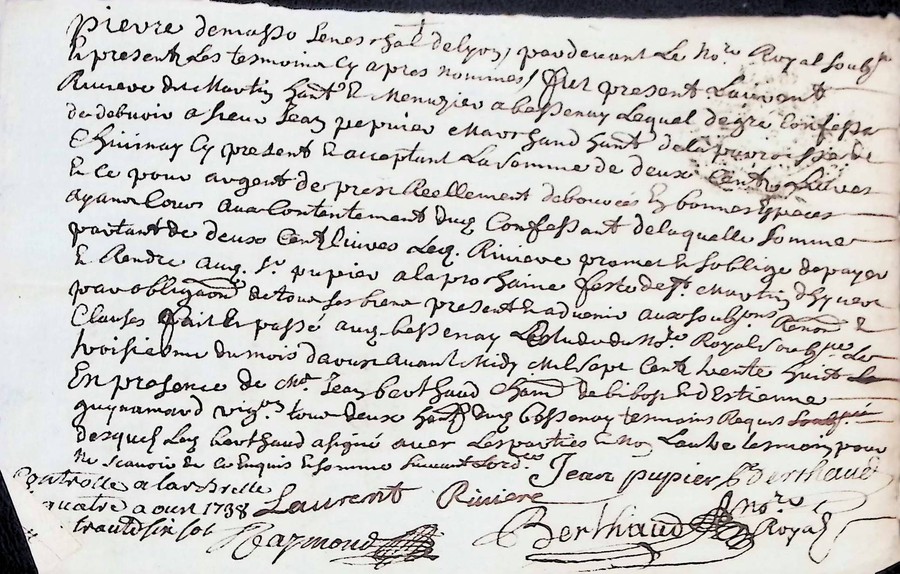 pierre demasso Seneschal delyon, pardevant Le No.re Royal soubs.ne
Et presents Les tesmoins Cy apres nommés, fut present Laurent
Riviere du Martin hant. et Menuzier a bessenay Lequel degré Confesse
de debvoir a sieur Jean pupier Marchand hant. de la parroisse de
Chivinay Cy present et acceptant La somme de deux Cents Livres
Et Ce pour argent de prest Reellement debourcés En bonnes Especes
ayant Cours aux Contentement dug Confessant de laquelle somme
partant de deux Cent livres Leq. Riviere promet et soblige de payer
Et Rendre aug. sr. pupier a la prochaine feste de st. Martin dhyvert
par obligaon de tous ses biens present et advenir aux soubzons Renons et
Clauses fait et passé aug bessenay Estude du No.re Royal soubs.né Le
troisieme du mois daoust avant Midy Mil sept Cent trente huit
En presence de Me Jean berthaud de bibost et destienne
guynamard vig.on tous deux hant. dug bessenay tesmoins Requis soubsignés
desquels Leq berthaud a signé avec Les parties et non Lautre tesmoin pour
Ne scavoir de ce Enquis et sommé suivant Lord.ce
Jean pupier Berthaud
Controlle a larbrelle
quatre aoust 1738 Laurent Riviere
Raymond Berthaud No.re Royal